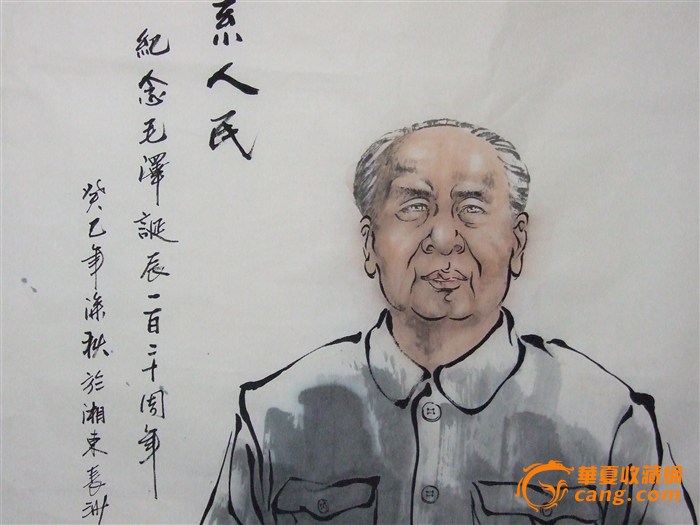 系人民
紀念毛澤誕辰一百二十周年
癸巳年深秋於湘東長洲
華夏收藏網
cang.com